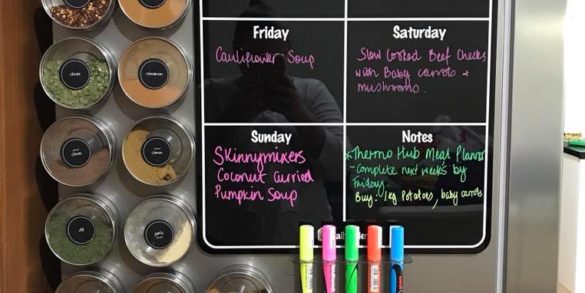 Friday
Cauliflower Soup
Saturday
Slow Cooked Beef Cheeks
with Baby carrots +
mushrooms.
Sunday
Skinnymixers
Coconut Curried
Pumpkin Soup
Notes
* Thermo Hub Meal Planner
- Complete next weeks by
Friday.
Buy: 1kg Potatoes, baby carrots
cloves
cinnamon
dill
garlic